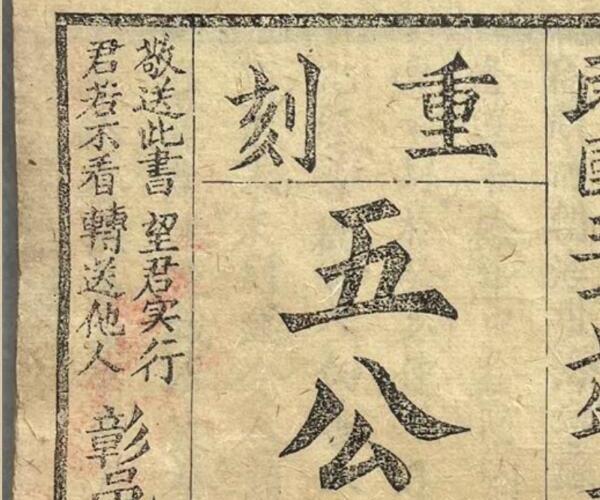 民國
重刻
五公
敬送此書 望君实行
君若不看 轉送他人
彰